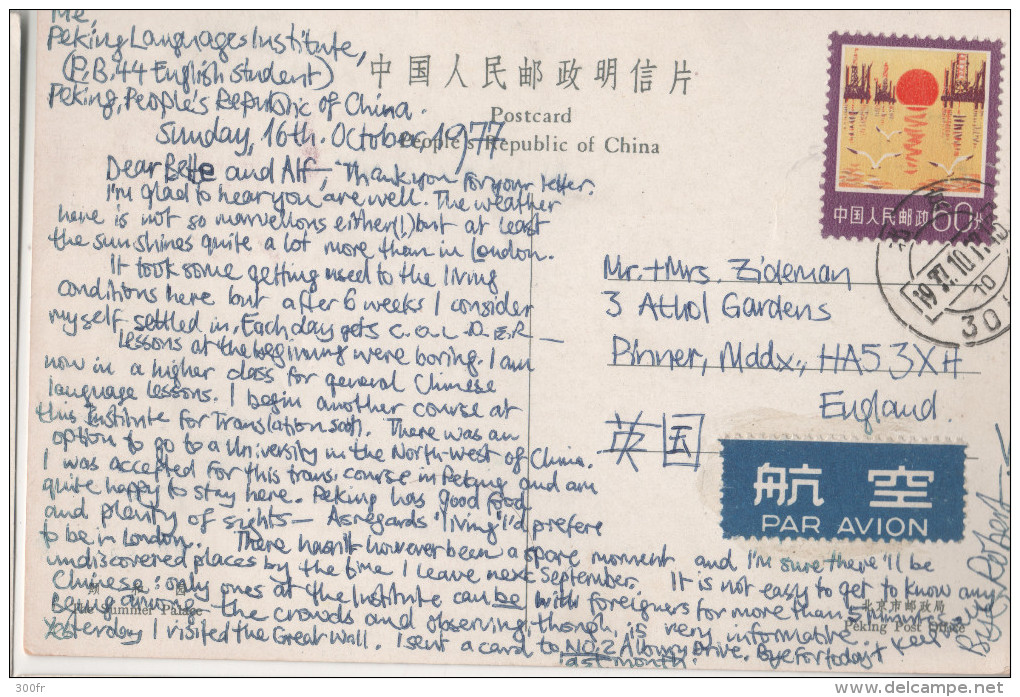 Me,
Peking Languages Institute,
(P.B.44 English student)
Peking, People's Republic of China.
Sunday, 16th. October, 1977
Dear Bette and Alf, Thankyou for your letter.
I'm glad to hear you are well. The weather
here is not so marvellous either(!) but at least
the sun shines quite a lot more than in London.
It took some getting used to the living
conditions here but after 6 weeks I consider
myself settled in. Each day gets C.O.L.D.E.R —
Lessons at the beginning were boring. I am
now in a higher class for general Chinese
language lessons. I begin another course at
this Institute for Translation soon. There was an
option to go to a University in the North-west of China.
I was accepted for this trans. course in Peking and am
quite happy to stay here. Peking has good food
and plenty of sights — As regards 'living' I'd prefere
to be in London. There hasn't however been a spare moment and I'm sure there'll be
undiscovered places by the time I leave next September. It is not easy to get to know any
Chinese: only ones at the Institute can be with foreigners for more than 5 minutes
Being among the crowds and observing, though, is very informative.
Yesterday I visited the Great Wall. I sent a card to NO.2 Albury Drive. Bye for today &
last month.
Bye Robert
中国人民邮政明信片
Postcard
People's Republic of China
中国人民邮政 60分
1977.10.
10
30
Mr. + Mrs. Zideman
3 Athol Gardens
Pinner, Mddx., HA5 3XH
England.
英国
航空
PAR AVION
颐和园
The Summer Palace
北京市邮政局
Peking Post Office
300fr
delcampe.net